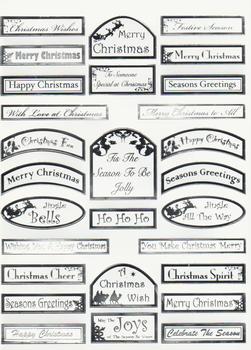 Christmas Wishes
Merry
Christmas
Festive Season
Merry Christmas
Merry Christmas
Happy Christmas
To Someone
Special at Christmas
Seasons Greetings
With Love at Christmas
Merry Christmas to All
Christmas Eve
Happy Christmas
Merry Christmas
Tis The
Season To Be
Jolly
Seasons Greetings
Jingle
Bells
Ho Ho Ho
Jingle
All The Way
Wishing You A Happy Christmas
You Make Christmas Merry
Christmas Cheer
A
Christmas
Wish
Christmas Spirit
Seasons Greetings
Merry Christmas
Happy Christmas
May The
Joys
Of The Season Be Yours
Celebrate The Season